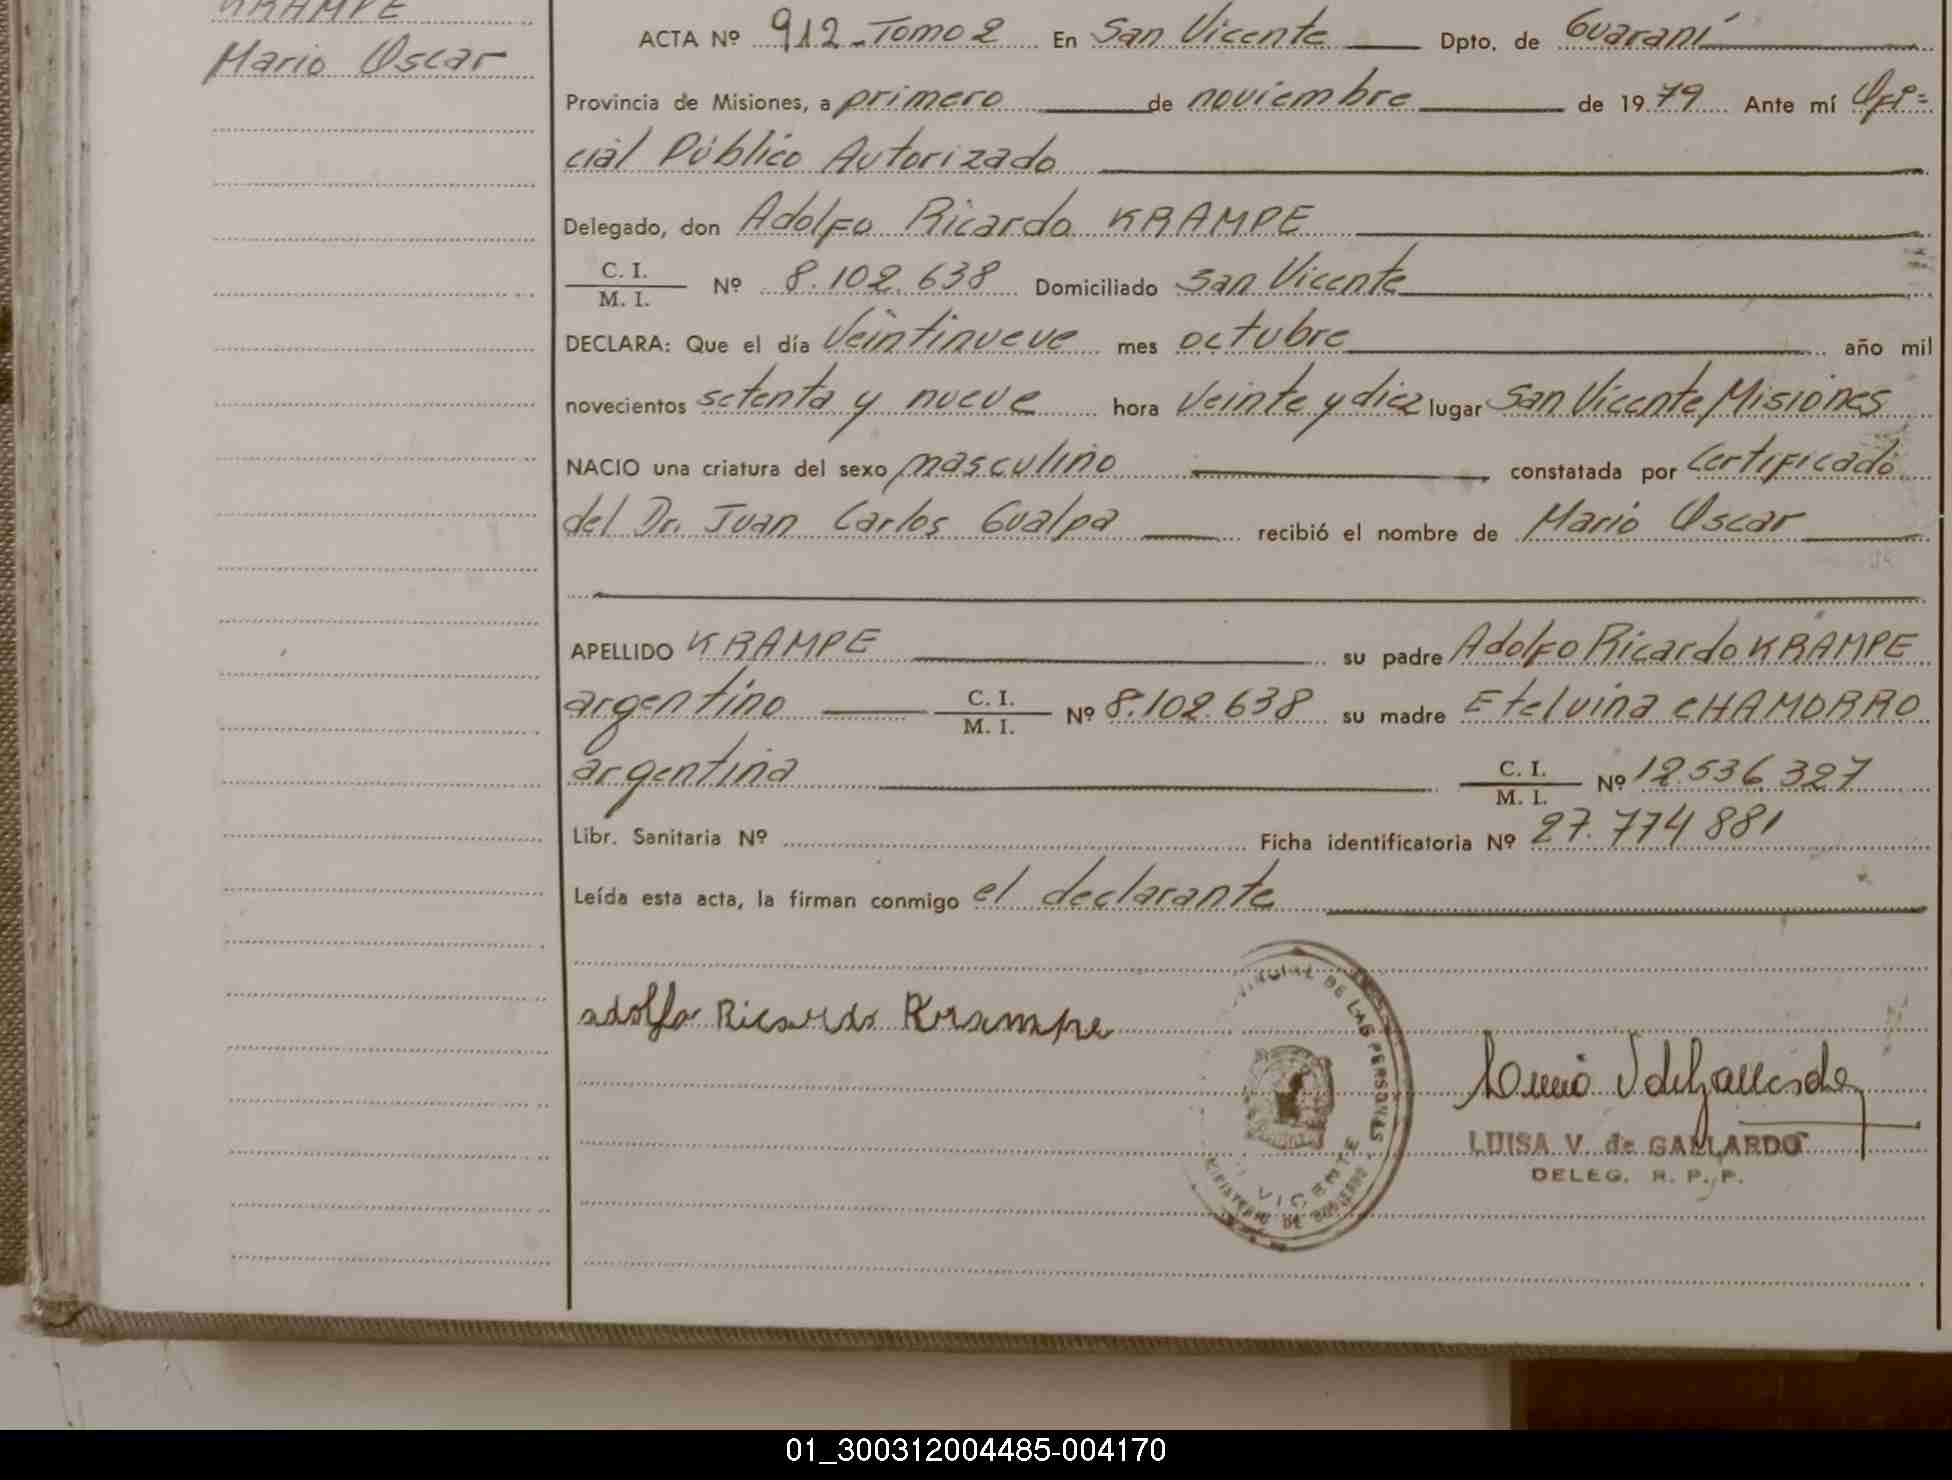 KRAMPE
Mario Oscar
ACTA Nº 912 - Tomo 2 En San Vicente Dpto. de Guaraní
Provincia de Misiones, a primero de noviembre de 1979 Ante mí Ofi=
cial Público Autorizado
Delegado, don Adolfo Ricardo KRAMPE
C. I.
M. I. Nº 8.102.638 Domiciliado San Vicente
DECLARA: Que el día Veintinueve mes octubre año mil
novecientos setenta y nueve hora Veinte y diez lugar San Vicente, Misiones
NACIO una criatura del sexo masculino constatada por Certificado
del Dr. Juan Carlos Gualpa recibió el nombre de Mario Oscar
APELLIDO KRAMPE su padre Adolfo Ricardo KRAMPE
argentino C. I. M. I. Nº 8.102.638 su madre Etelvina CHAMORRO
argentina C. I. M. I. Nº 12.536.327
Libr. Sanitaria Nº Ficha identificatoria Nº 27.774881
Leída esta acta, la firman conmigo el declarante
adolfo Ricardo Krampe
VINCIAL DE LAS PERSONAS
VICENTE
MINISTERIO DE GOBIERNO
LUISA V. de GALLARDO
DELEG. R. P. P.
01_300312004485-004170